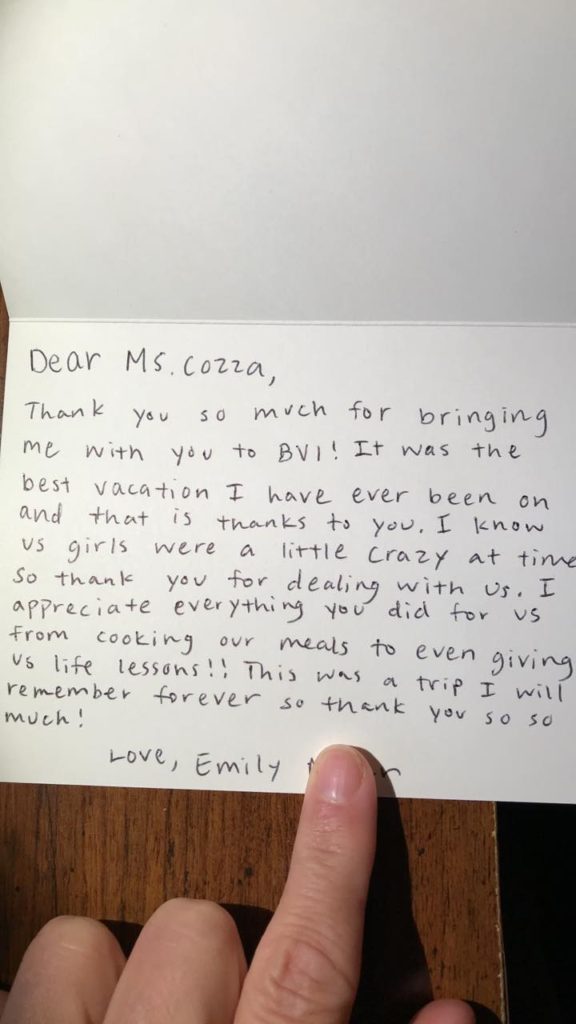 Dear Ms. Cozza,
Thank you so much for bringing
me with you to BVI! It was the
best vacation I have ever been on
and that is thanks to you. I know
us girls were a little crazy at time
So thank you for dealing with us. I
appreciate everything you did for us
from cooking our meals to even giving
us life lessons!! This was a trip I will
remember forever so thank you so so
much!
Love, Emily